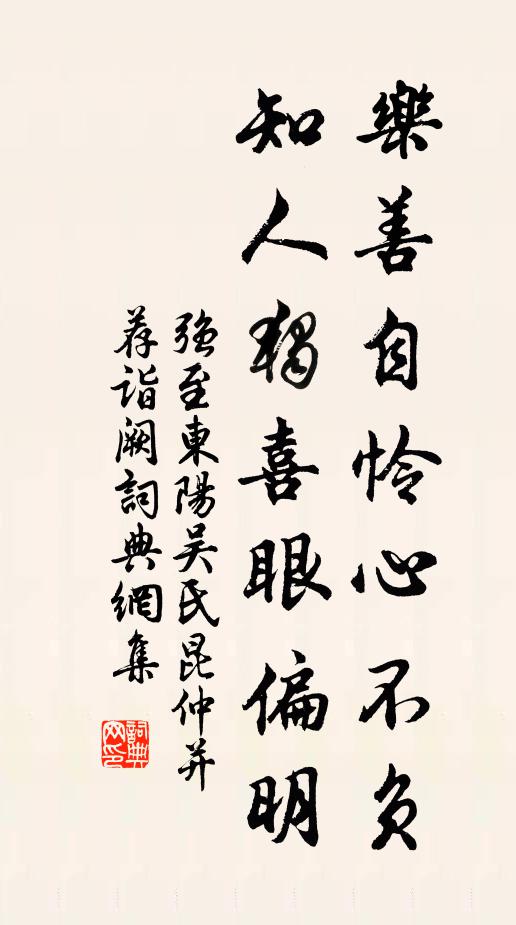 樂善自怜心不負
知人獨喜眼偏明
強至東陽吴民昆仲并
荐詣闕詞典網集
詞典
网印